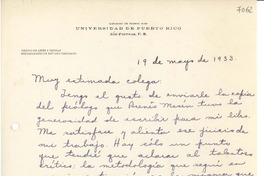 7062
GOBIERNO DE PUERTO RICO
UNIVERSIDAD DE PUERTO RICO
RÍO PIEDRAS, P. R.
19 de mayo de 1933.
Muy estimada colega:
Tengo el gusto de enviarle la copia
del prólogo que Arenés Mesin tuvo la
generosidad de escribir para mi libro.
Me satisface y alienta ese juicio de
mi trabajo. Hay sólo un punto
que tendré que aclarar al talentoso
crítico, la metodología que seguí en